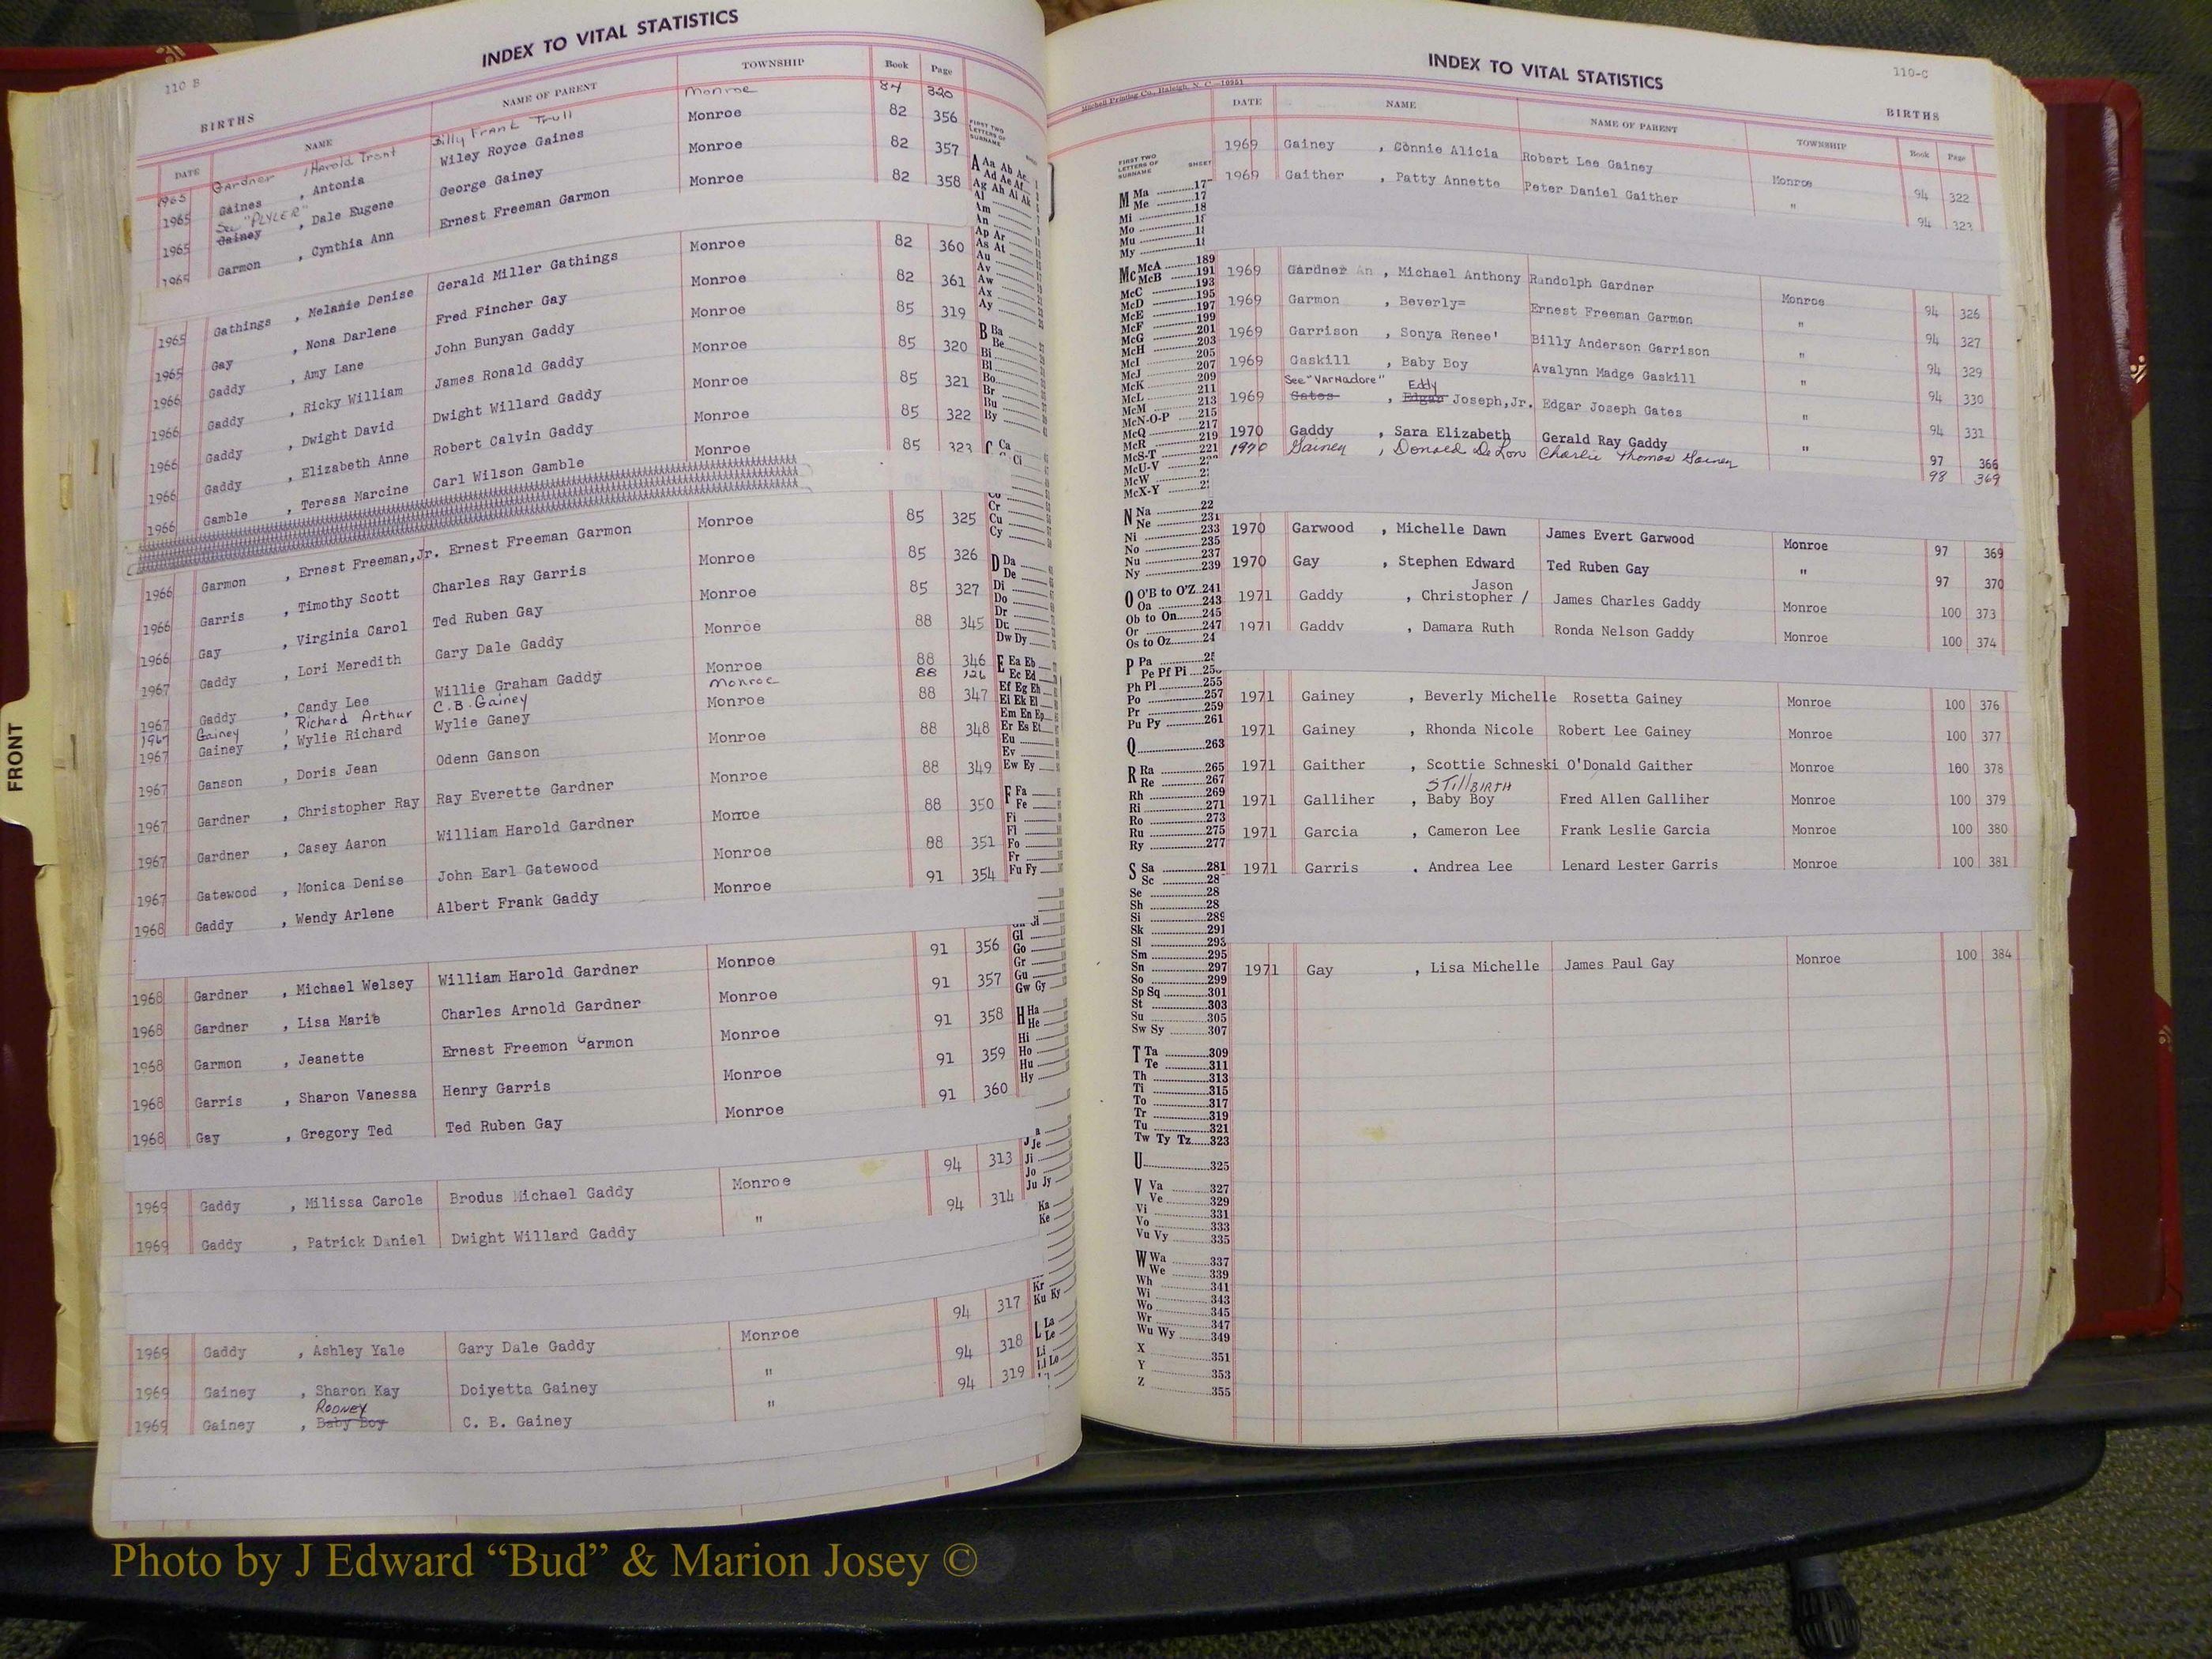 110 B
INDEX TO VITAL STATISTICS
BIRTHS
DATE NAME NAME OF PARENT TOWNSHIP Book Page
1965 Gardner , Harold Trant Billy Frank Trull Monroe 84 320
1965 Gaines , Antonia Wiley Royce Gaines Monroe 82 356
See "PLYLER"
1965 Gainey , Dale Eugene George Gainey Monroe 82 357
1965 Garmon , Cynthia Ann Ernest Freeman Garmon Monroe 82 358
1965 Gathings , Melanie Denise Gerald Miller Gathings Monroe 82 360
1965 Gay , Nona Darlene Fred Fincher Gay Monroe 82 361
1966 Gaddy , Amy Lane John Bunyan Gaddy Monroe 85 319
1966 Gaddy , Ricky William James Ronald Gaddy Monroe 85 320
1966 Gaddy , Dwight David Dwight Willard Gaddy Monroe 85 321
1966 Gaddy , Elizabeth Anne Robert Calvin Gaddy Monroe 85 322
1966 Gamble , Teresa Marcine Carl Wilson Gamble Monroe 85 323
1966 Garmon , Ernest Freeman,Jr. Ernest Freeman Garmon Monroe 85 325
1966 Garris , Timothy Scott Charles Ray Garris Monroe 85 326
1966 Gay , Virginia Carol Ted Ruben Gay Monroe 85 327
1967 Gaddy , Lori Meredith Gary Dale Gaddy Monroe 88 345
1967 Gaddy , Candy Lee Willie Graham Gaddy Monroe 88 346
1967 Gainey , Richard Arthur C.B. Gainey Monroe 88 126
1967 Gainey , Wylie Richard Wylie Ganey Monroe 88 347
1967 Ganson , Doris Jean Odenn Ganson Monroe 88 348
1967 Gardner , Christopher Ray Ray Everette Gardner Monroe 88 349
1967 Gardner , Casey Aaron William Harold Gardner Monroe 88 350
1967 Gatewood , Monica Denise John Earl Gatewood Monroe 88 351
1968 Gaddy , Wendy Arlene Albert Frank Gaddy Monroe 91 354
1968 Gardner , Michael Welsey William Harold Gardner Monroe 91 356
1968 Gardner , Lisa Marie Charles Arnold Gardner Monroe 91 357
1968 Garmon , Jeanette Ernest Freemon Garmon Monroe 91 358
1968 Garris , Sharon Vanessa Henry Garris Monroe 91 359
1968 Gay , Gregory Ted Ted Ruben Gay Monroe 91 360
1969 Gaddy , Milissa Carole Brodus Michael Gaddy Monroe 94 313
1969 Gaddy , Patrick Daniel Dwight Willard Gaddy " 94 314
1969 Gaddy , Ashley Yale Gary Dale Gaddy Monroe 94 317
1969 Gainey , Sharon Kay Doiyetta Gainey " 94 318
RODNEY
1969 Gainey , Baby Boy C. B. Gainey " 94 319
FRONT
FIRST TWO
LETTERS OF
SURNAME
A Aa Ab Ac
Ad Ae Af
Ag Ah Ai Ak
Al
Am
An
Ap Ar
As At
Au
Av
Aw
Ax
Ay
B Ba
Be
Bi
Bl
Bo
Br
Bu
By
C Ca
Ci
Co
Cr
Cu
Cy
D Da
De
Di
Do
Dr
Du
Dw Dy
E Ea Eb
Ec Ed
Ef Eg Eh
Ei Ek El
Em En Ep
Er Es Et
Eu
Ev
Ew Ey
F Fa
Fe
Fi
Fl
Fo
Fr
Fu Fy
Gl
Go
Gr
Gu
Gw Gy
H Ha
He
Hi
Ho
Hu
Hy
Je
Ji
Jo
Ju Jy
Ka
Ke
Kr
Ku Ky
L La
Le
Li
Ll Lo
110-C
INDEX TO VITAL STATISTICS
Mitchell Printing Co., Raleigh, N. C.—10951
BIRTHS
DATE NAME NAME OF PARENT TOWNSHIP Book Page
1969 Gainey , Connie Alicia Robert Lee Gainey Monroe 94 322
1969 Gaither , Patty Annette Peter Daniel Gaither " 94 323
1969 Gardner An , Michael Anthony Randolph Gardner Monroe 94 326
1969 Garmon , Beverly= Ernest Freeman Garmon " 94 327
1969 Garrison , Sonya Renee' Billy Anderson Garrison " 94 329
1969 Gaskill , Baby Boy Avalynn Madge Gaskill " 94 330
See "Varnadore" Eddy
1969 Gates , Edgar Joseph,Jr. Edgar Joseph Gates " 94 331
1970 Gaddy , Sara Elizabeth Gerald Ray Gaddy " 97 366
1970 Gainey , Donald DeLon Charlie Thomas Gainey 98 369
1970 Garwood , Michelle Dawn James Evert Garwood Monroe 97 369
1970 Gay , Stephen Edward Ted Ruben Gay " 97 370
Jason
1971 Gaddy , Christopher / James Charles Gaddy Monroe 100 373
1971 Gaddy , Damara Ruth Ronda Nelson Gaddy Monroe 100 374
1971 Gainey , Beverly Michelle Rosetta Gainey Monroe 100 376
1971 Gainey , Rhonda Nicole Robert Lee Gainey Monroe 100 377
1971 Gaither , Scottie Schneski O'Donald Gaither Monroe 100 378
STillBIRTH
1971 Galliher , Baby Boy Fred Allen Galliher Monroe 100 379
1971 Garcia , Cameron Lee Frank Leslie Garcia Monroe 100 380
1971 Garris . Andrea Lee Lenard Lester Garris Monroe 100 381
1971 Gay , Lisa Michelle James Paul Gay Monroe 100 384
FIRST TWO
LETTERS OF
SURNAME SHEET
M Ma 17
Me 17
Mi 18
Mo
Mu
My
Mc McA 189
McB 191
McC 193
McD 195
McE 197
McF 199
McG 201
McH 203
McI 205
McJ 207
McK 209
McL 211
McM 213
McN-O-P 215
McQ 217
McR 219
McS-T 221
McU-V
McW
McX-Y
N Na 22
Ne 231
Ni 233
No 235
Nu 237
Ny 239
O O'B to O'Z 241
Oa 243
Ob to On 245
Or 247
Os to Oz 24
P Pa
Pe Pf Pi 25
Ph Pl 255
Po 257
Pr 259
Pu Py 261
Q 263
R Ra 265
Re 267
Rh 269
Ri 271
Ro 273
Ru 275
Ry 277
S Sa 281
Sc 28
Se 28
Sh 28
Si 289
Sk 291
Sl 293
Sm 295
Sn 297
So 299
Sp Sq 301
St 303
Su 305
Sw Sy 307
T Ta 309
Te 311
Th 313
Ti 315
To 317
Tr 319
Tu 321
Tw Ty Tz 323
U 325
V Va 327
Ve 329
Vi 331
Vo 333
Vu Vy 335
W Wa 337
We 339
Wh 341
Wi 343
Wo 345
Wr 347
Wu Wy 349
X 351
Y 353
Z 355
Photo by J Edward “Bud” & Marion Josey ©